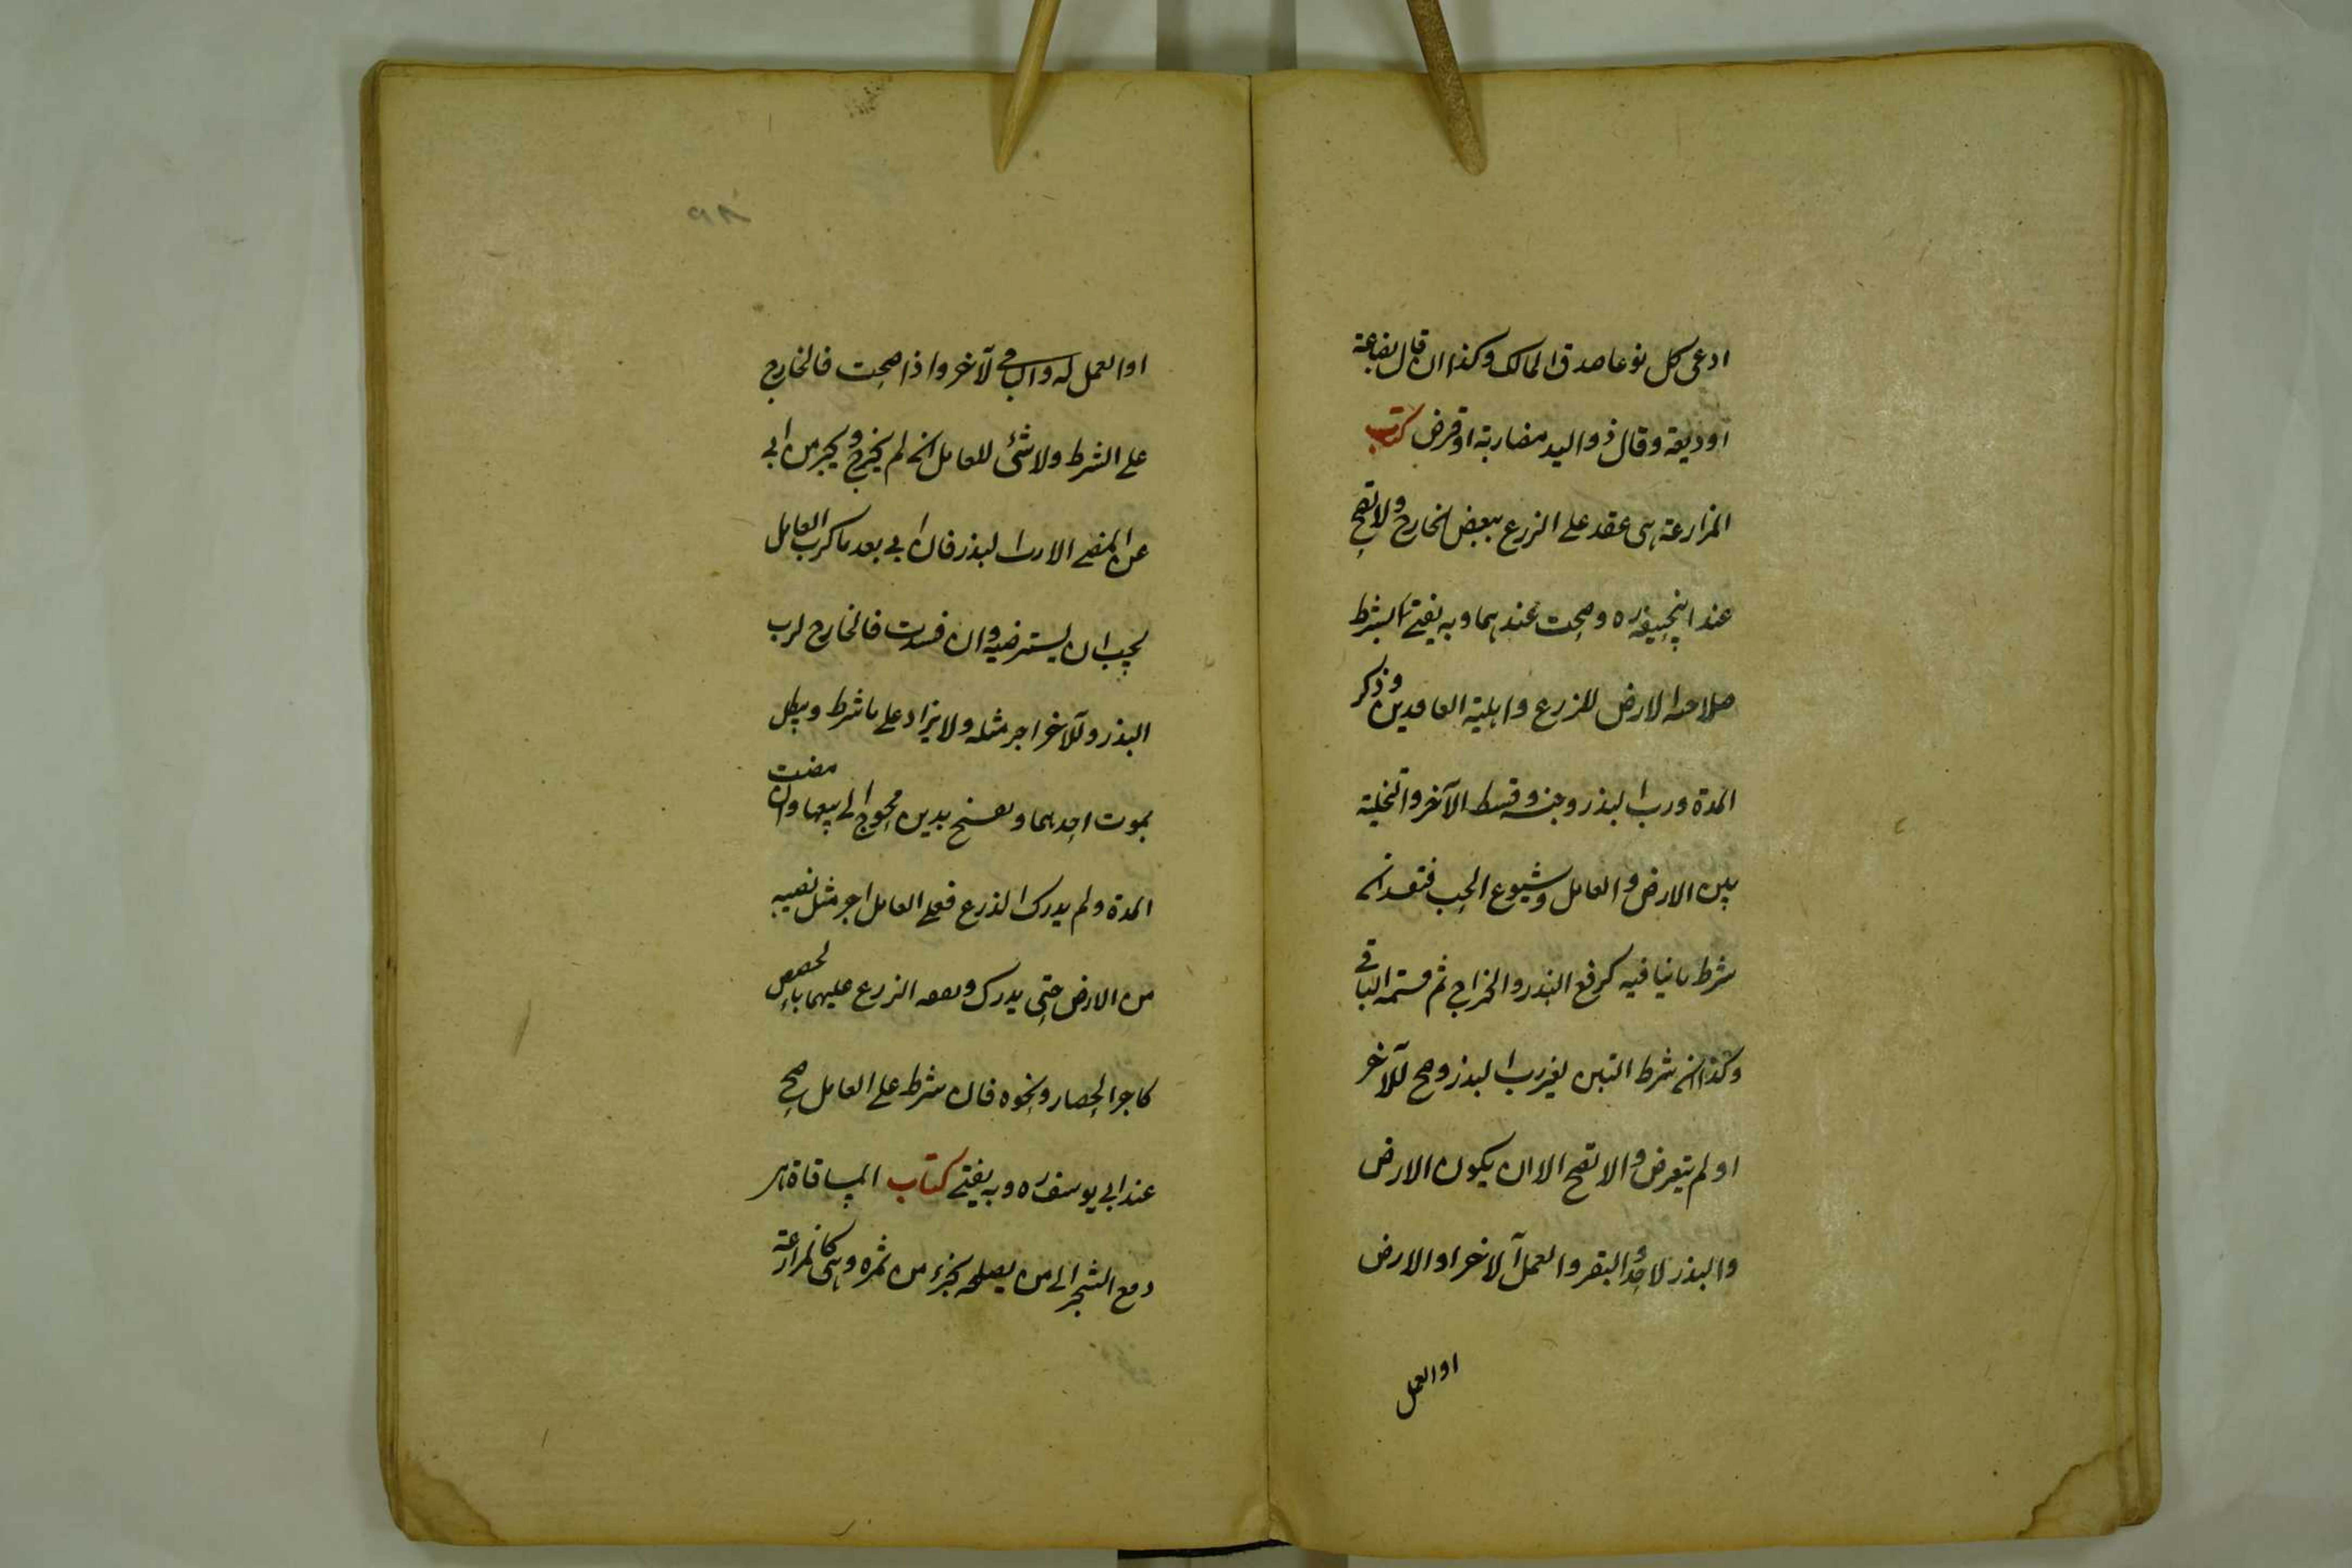 ادعى كل نوعا صدق المالك وكذا ان قال بضاعة
او وديعة وقال ذو اليد مضاربة او قرض كتاب
المزارعة هى عقد على الزرع ببعض الخارج ولا تصح
عند ابيحنيفه ره وصحت عندهما وبه يفتى بشرط
صلاحية الارض للزرع واهلية العاقدين وذكر
المدة ورب البذر وجنسه وقسط الآخر والتخلية
بين الارض والعامل وشيوع الحب فتفسد ان
شرط ما ينافيه كرفع البذر والخراج ثم قسمة الباقى
وكذا ان شرط التبن لغير رب البذر وصح للآخر
او لم يتعرض والا تصح الا ان يكون الارض
والبذر لاحد والبقر والعمل لآخر او الارض
او العمل
او العمل له والباقى لآخر واذا صحت فالخارج
على الشرط ولا شئ للعامل ان لم يخرج ويجبر من ابى
عن المضى الا رب البذر فان ابى بعد ما كرب العامل
يجب ان يسترضيه وان فسدت فالخارج لرب
البذر وللآخر اجر مثله ولا يزاد على ما شرط ويبطل
بموت احدهما وتفسخ بدين محوج الى بيعها وان مضت
المدة ولم يدرك الزرع فعلى العامل اجر مثل نصيبه
من الارض حتى يدرك ونفقة الزرع عليهما بالحصص
كاجر الحصاد ونحوه فان شرط على العامل صح
عند ابى يوسف ره وبه يفتى كتاب المساقاة هى
دفع الشجر الى من يصلحه بجزء من ثمره وهى كالمزارعة